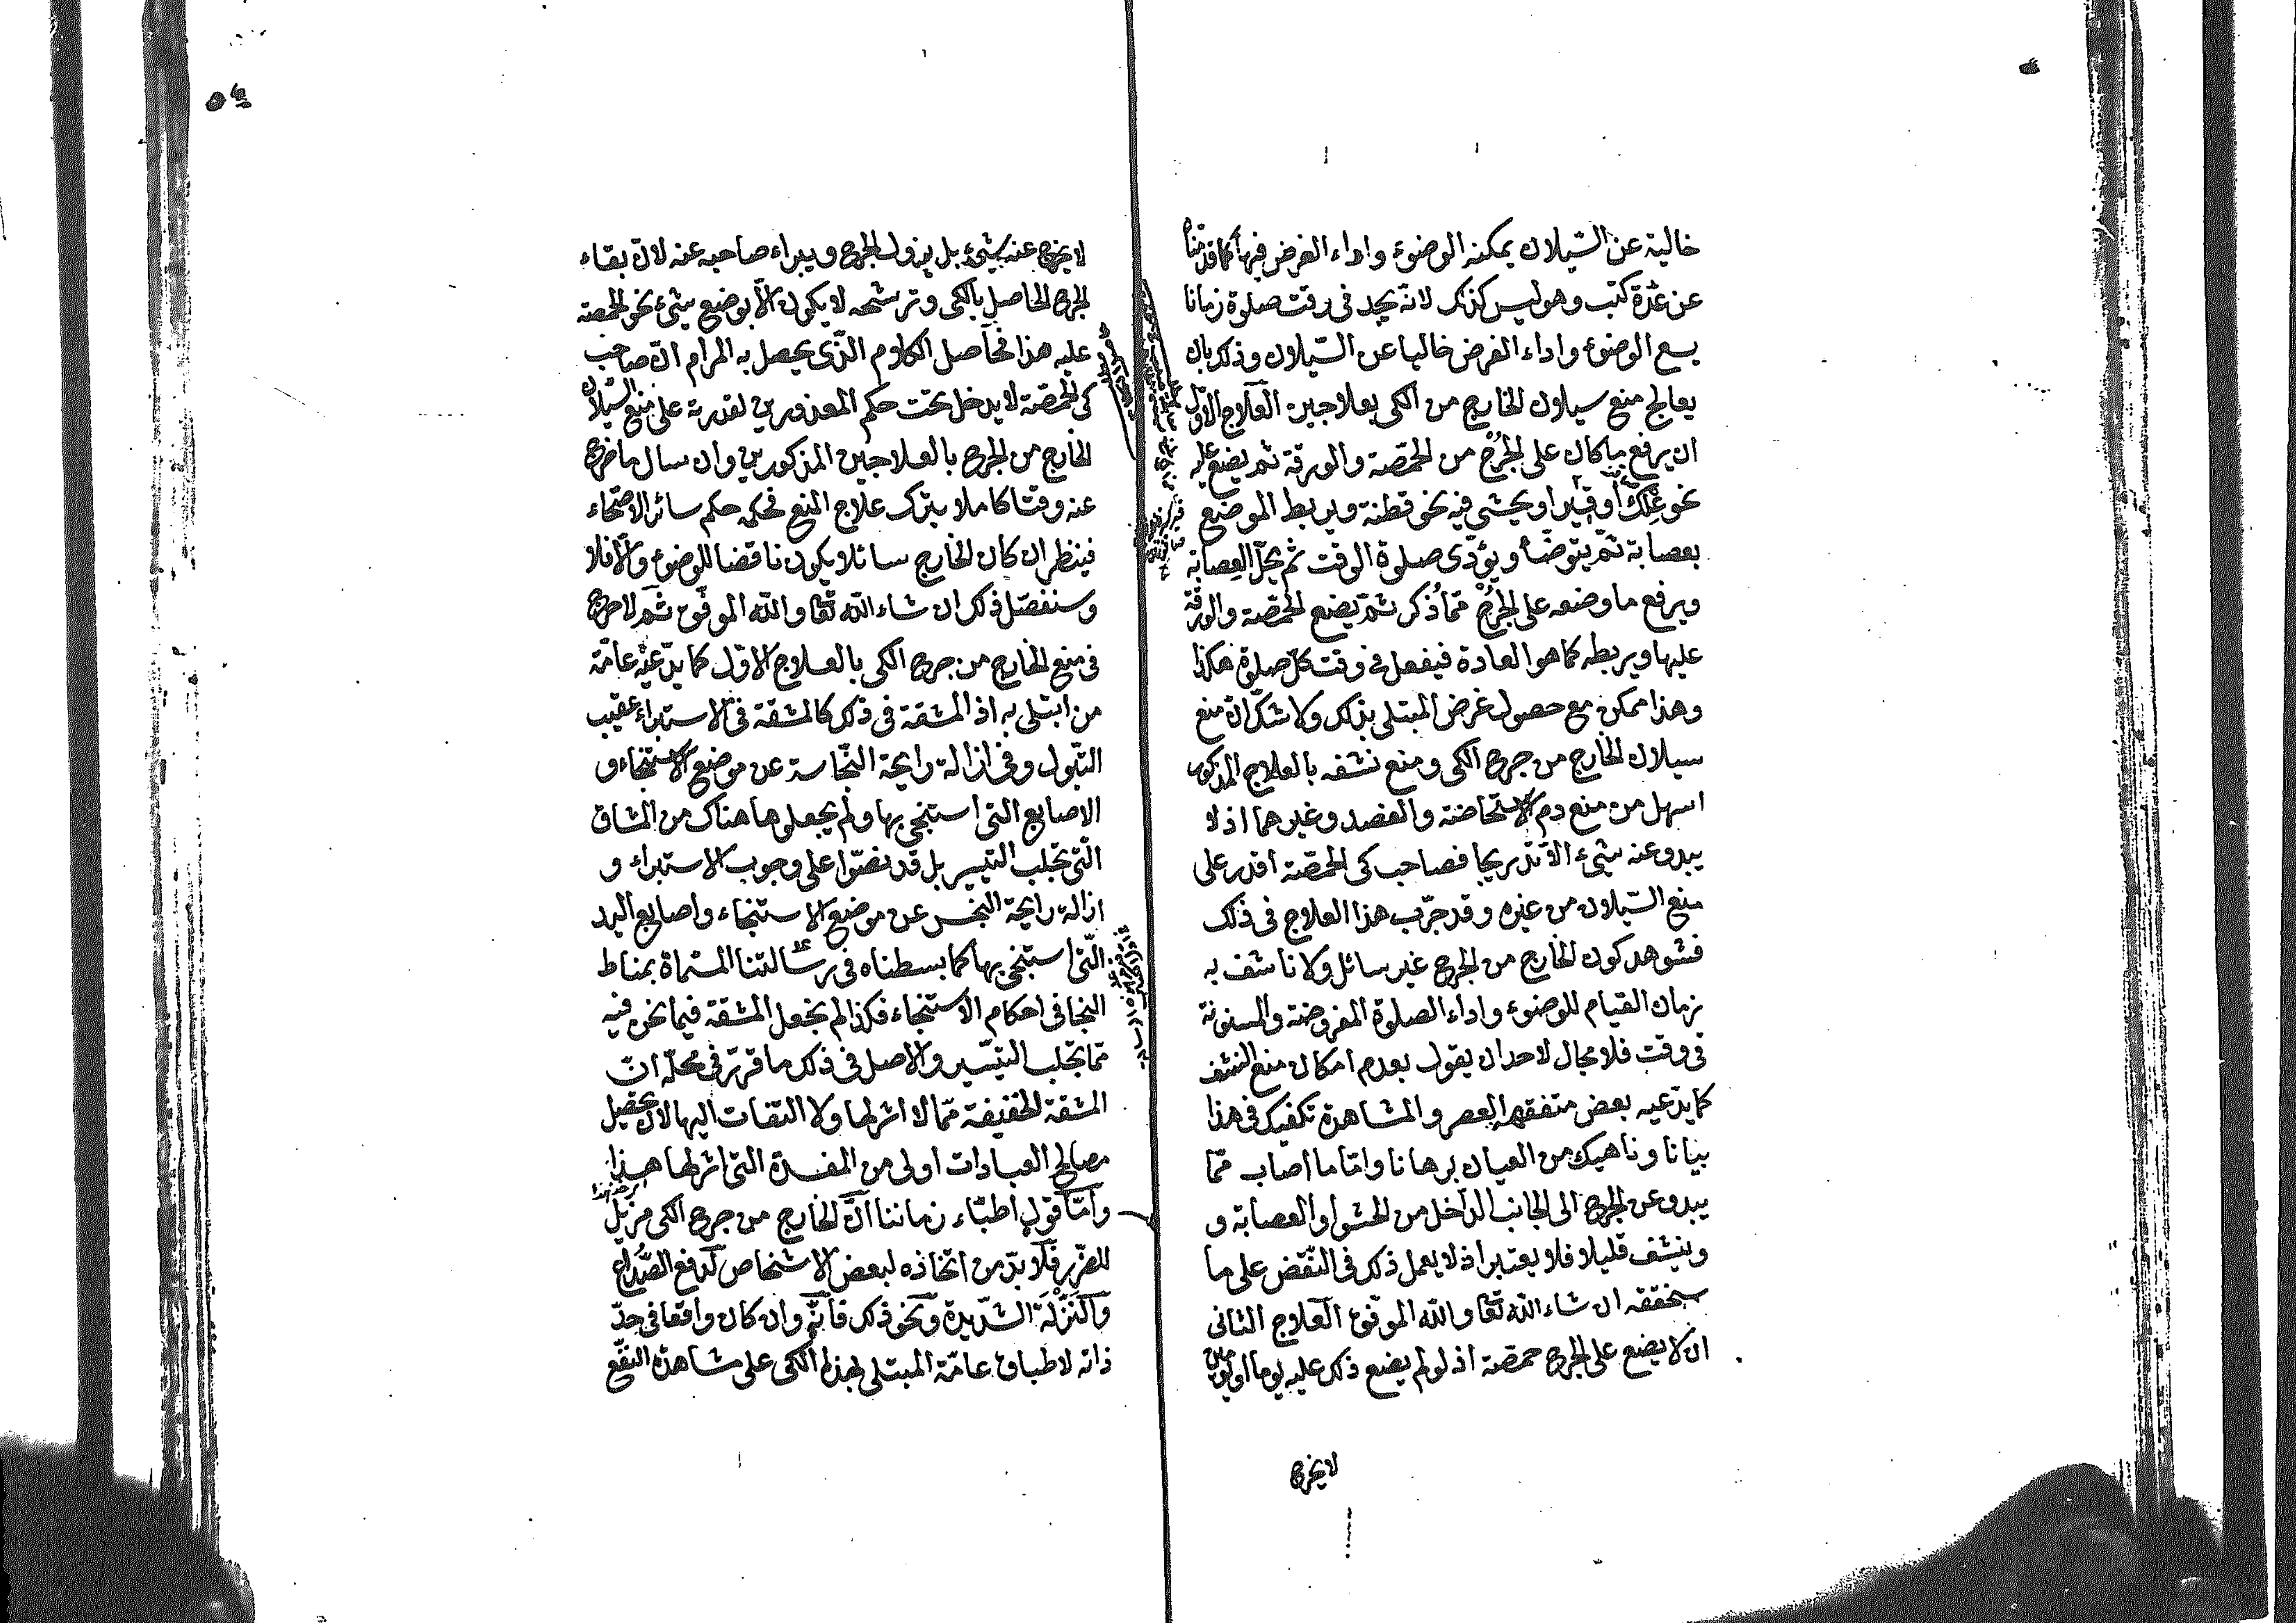 خالية عن السيلان يمكنه الوضوء واداء الفرض فيها كما قدمناه
عن عدة كتب وهو ليس كذلك لانه يجد في وقت صلوة زمانا
يسع الوضوء واداء الفرض خاليا عن السيلان وذلك بان
يعالج منع سيلان الخارج من الكى بعلاجين العلاج الاول
ان يرفع ما كان على الجرح من الحمصة والورقة ثم يضع عليه
نحو علك او قير او يحشى فيه نحو قطنة ويربط الموضع
بعصابة ثم يتوضأ ويؤدى صلوة الوقت ثم يحل العصابة
ويرفع ما وضعه على الجرح مما ذكر ثم يضع الحمصة والورقة
عليها ويربطه كما هو العادة فيفعل في وقت كل صلوة هكذا
وهذا ممكن مع حصول غرض المبتلى بذلك ولا شك ان منع
سيلان الخارج من جرح الكى ومنع نشفه بالعلاج المذكور
اسهل من منع دم الاستحاضة والفصد وغيرهما اذ لا
يبدو عنه شئ الا تدريجا فصاحب كى الحمصة اقدر على
منع السيلان من غيره وقد جرب هذا العلاج في ذلك
فشوهد كون الخارج من الجرح غير سائل ولا ناشف به
زمان القيام للوضوء واداء الصلوة المفروضة والمسنونة
في وقت فلا مجال لاحد ان يقول بعدم امكان منع النشف
كما يدعيه بعض متفقهة العصر والمشاهدة تكفيك في هذا
بيانا وناهيك من العيان برهانا واما ما اصاب مما
يبدو عن الجرح الى الجانب الداخل من الحشو او العصابة و
وينشف قليلا فلا يعتبر اذ لا يعمل ذلك في النقض على ما
سنحققه ان شاء الله تعا والله الموفق العلاج الثانى
ان لا يضع على الجرح حمصة اذ لو لم يضع ذلك عليه يوما او يومين
لا يخرج
لا يخرج عنه شئ بل يزول الجرح ويبراء صاحبه عنه لان بقاء
الجرح الحاصل بالكى وترشحه لا يكون الا بوضع شئ نحو الحمصة
عليه هذا فحاصل الكلام الذى يحصل به المرام ان صاحب
كى الحمصة لا يدخل تحت حكم المعذورين لقدرته على منع السيلان
الخارج من الجرح بالعلاجين المذكورين وان سال ما خرج
عنه وقتا كاملا بترك علاج المنع فحكمه حكم سائر الاصحاء
فينظر ان كان الخارج سائلا يكون ناقضا للوضوء والا فلا
وسنفصل ذلك ان شاء الله تعا والله الموفق ثم لا حرج
في منع الخارج من جرح الكى بالعلاج الاول كما يدعيه عامة
من ابتلى به اذ المشقة في ذلك كالمشقة في الاستبراء عقيب
التبول وفي ازالة رايحة النجاسة عن موضع الاستنجاء و
الاصابع التى استنجى بها ولم يجعلوها هناك من المشاق
التى تجلب التيسير بل قد نصوا على وجوب الاستبراء و
ازالة رايحة النجس عن موضع الاستنجاء واصابع اليد
التى استنجى بها كما بسطناه في رسالتنا المسماة بمناط
النجا في احكام الاستنجاء فكذا لم يجعل المشقة فيما نحن فيه
مما تجلب التيسير والاصل في ذلك ما قرر في محله ان
المشقة الخفيفة مما لا اثر لها ولا التفات اليها لان تحصيل
مصالح العبادات اولى من المفسدة التى اثر لها هذا
واما قول اطباء زماننا ان الخارج من جرح الكى مزيل
للضرر فلا بد من اتخاذه لبعض الاشخاص لدفع الصداع
والنزلة الشديدة ونحو ذلك فانه وان كان واقعا في حد
ذاته لاطباق عامة المبتلى بهذا الكى على مشاهدة النفع